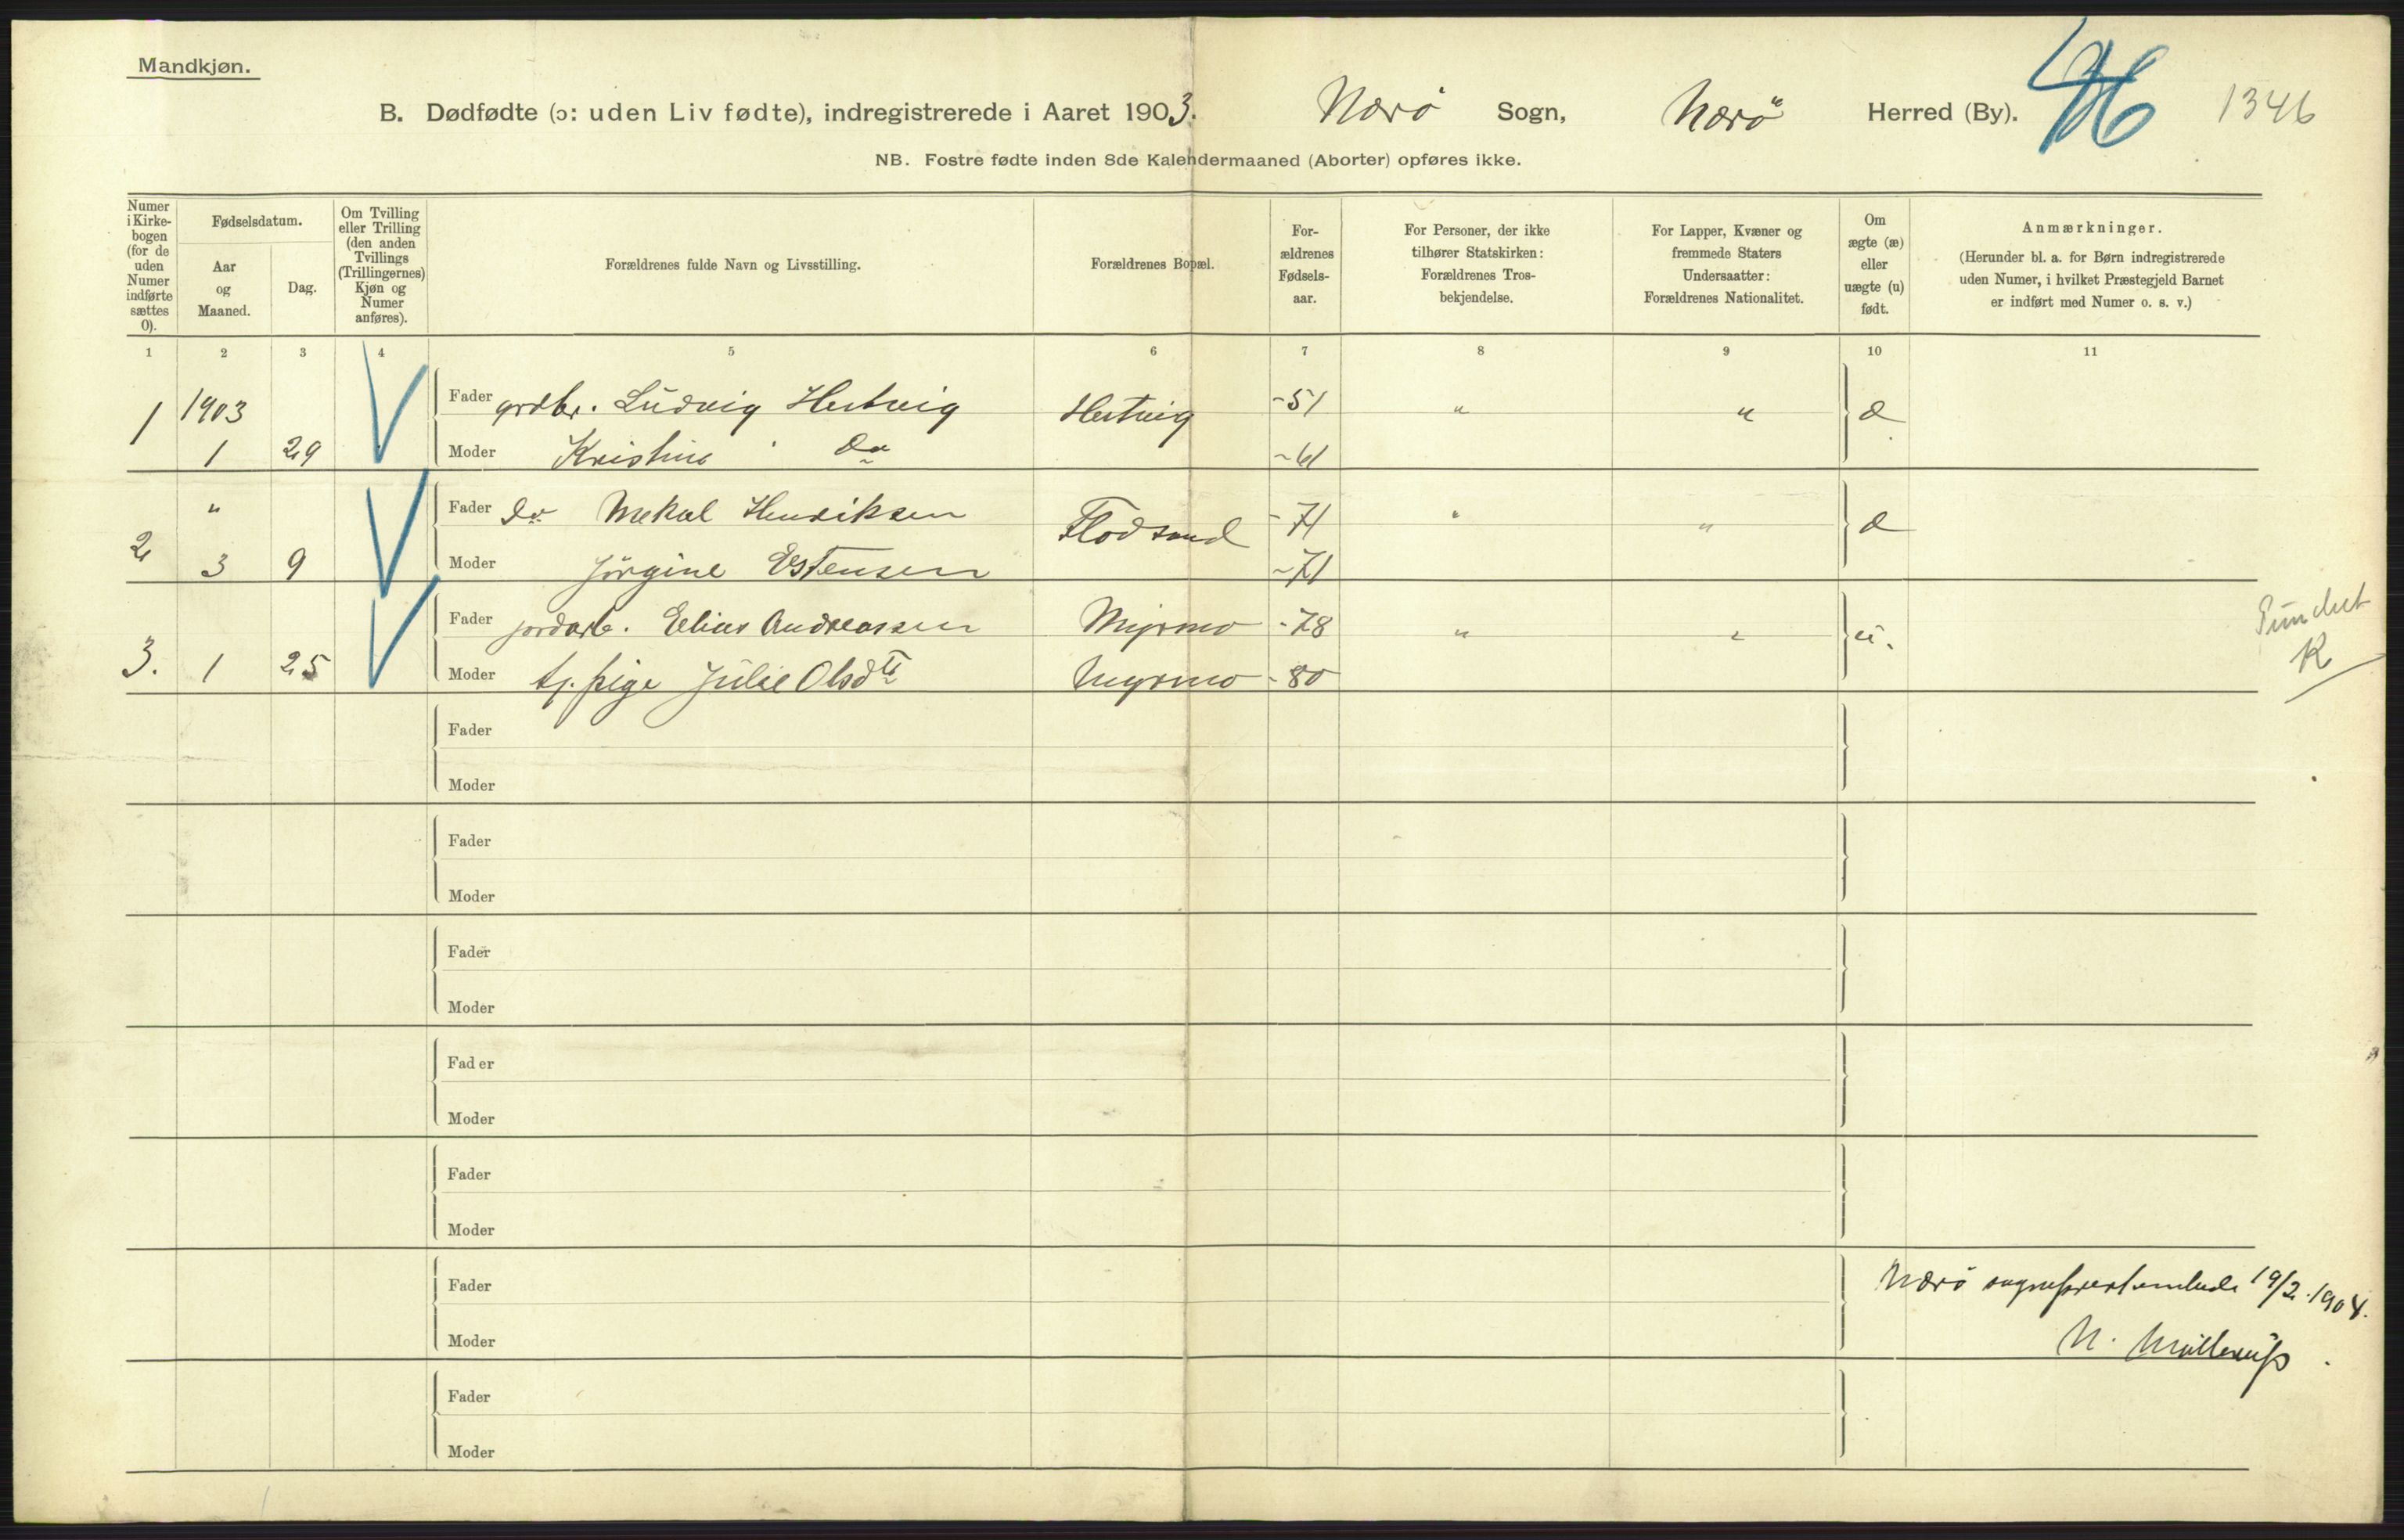 Mandkjøn.
B. Dødfødte (ɔ: uden Liv fødte), indregistrerede i Aaret 1903. Nærö Sogn, Nærö Herred (By). 46 1346
NB. Fostre fødte inden 8de Kalendermaaned (Aborter) opføres ikke.
Numer i Kirke-bogen (for de uden Numer indførte sættes 0).
Fødselsdatum.
Aar og Maaned.
Dag.
Om Tvilling eller Trilling (den anden Tvillings (Trillingernes) Kjøn og Numer anføres).
Forældrenes fulde Navn og Livsstilling.
Forældrenes Bopæl.
For-ældrenes Fødsels-aar.
For Personer, der ikke tilhører Statskirken: Forældrenes Tros-bekjendelse.
For Lapper, Kvæner og fremmede Staters Undersaatter: Forældrenes Nationalitet.
Om ægte (æ) eller uægte (u) født.
Anmærkninger.
(Herunder bl. a. for Børn indregistrerede uden Numer, i hvilket Præstegjeld Barnet er indført med Numer o. s. v.)
1 2 3 4 5 6 7 8 9 10 11
1 1903 Fader grdbr. Ludvig Hertvig Hertvig -51 " " æ
1 29 Moder Kristine Do -61
2 " Fader Do Mekal Henriksen Flodsund -71 " " æ
3 9 Moder Jörgine Estensen -71
3. Fader jordarb. Elias Andreassen Myrmo -78 " " u.
1 25 Moder tj. pige Julie Olsdtr Myrmo -80
K
Fader
Moder
Fader
Moder
Fader
Moder
Fader
Moder
Fader
Moder
Fader
Moder
Nærö sogneprestembede 19/2. 1904.
N. Müllerup
Fader
Moder